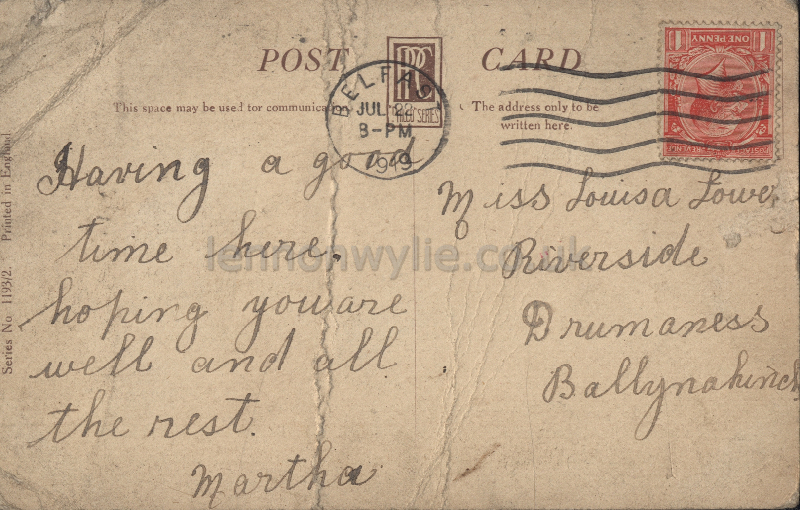 POST CARD
ONE PENNY
BELFAST
JUL 22
8-PM
1919
This space may be used for
The address only to be
written here.
Having a good
time here.
hoping you are
well and all
the rest.
Martha
Miss Louisa
Riverside
Drumaness
Ballynahinch
lennonwylie.co.uk
Series No 1193/2. Printed in England